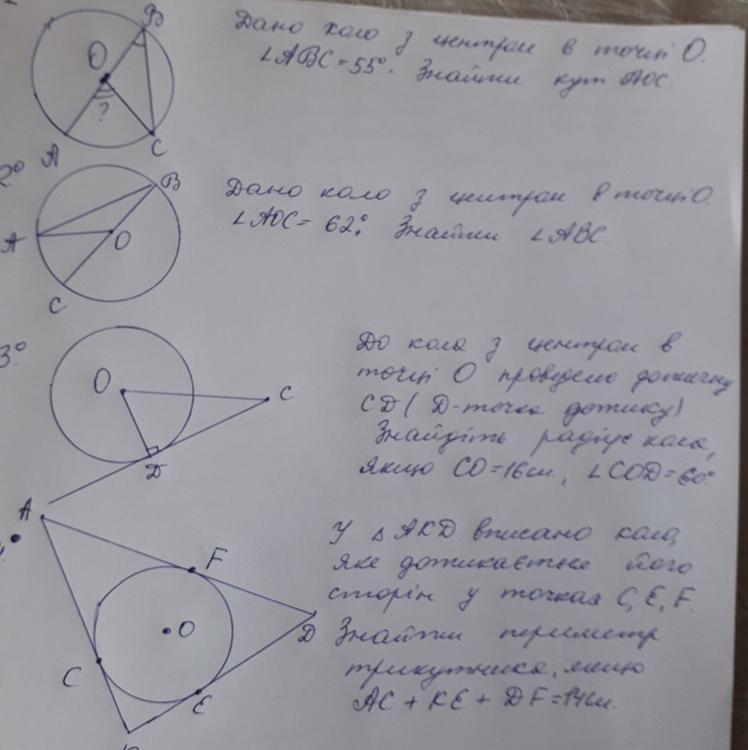 B
Дано коло з центром в точці O.
∠ABC = 55°. Знайти кут AOC.
O
?
A
C
2°
B
Дано коло з центром в точці O.
∠AOC = 62°. Знайти ∠ABC.
A
O
C
3°
До кола з центром в
точці O проведено дотичну
CD (D-точка дотику)
Знайдіть радіус кола,
якщо CO = 16см, ∠COD = 60°
O
C
D
A
У △AKD вписано коло,
яке дотикається його
сторін у точках C, E, F.
Знайти периметр
трикутника, якщо
AC + KE + DF = 14см.
F
O
D
C
E